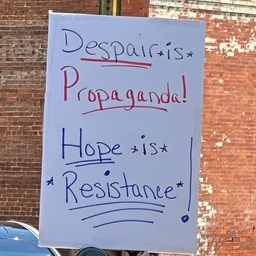 Despair *is*
Propaganda!
Hope *is*
*Resistance*!